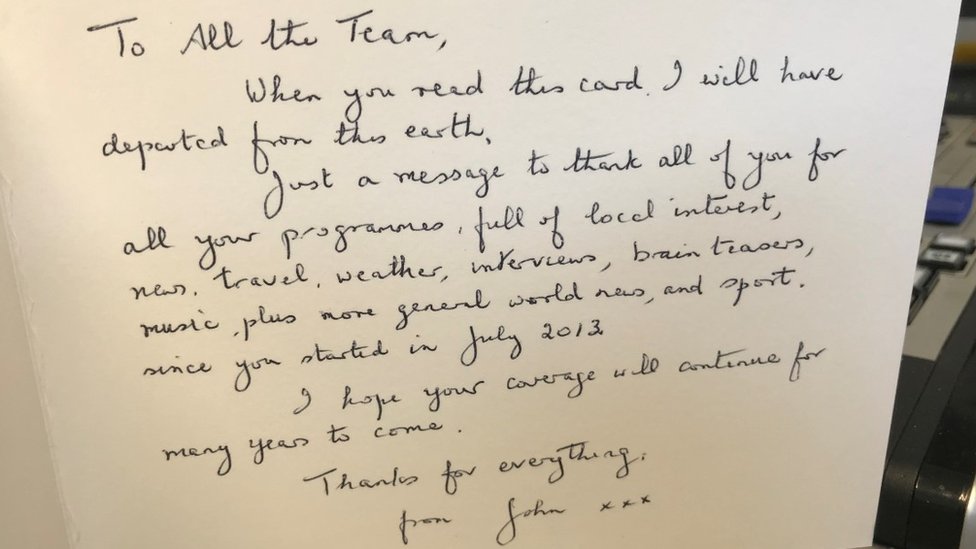 To All the Team,
When you read this card. I will have
departed from this earth.
Just a message to thank all of you for
all your programmes, full of local interest,
news, travel, weather, interviews, brain teasers,
music, plus more general world news, and sport.
since you started in July 2013
I hope your coverage will continue for
many years to come.
Thanks for everything.
from John xxx